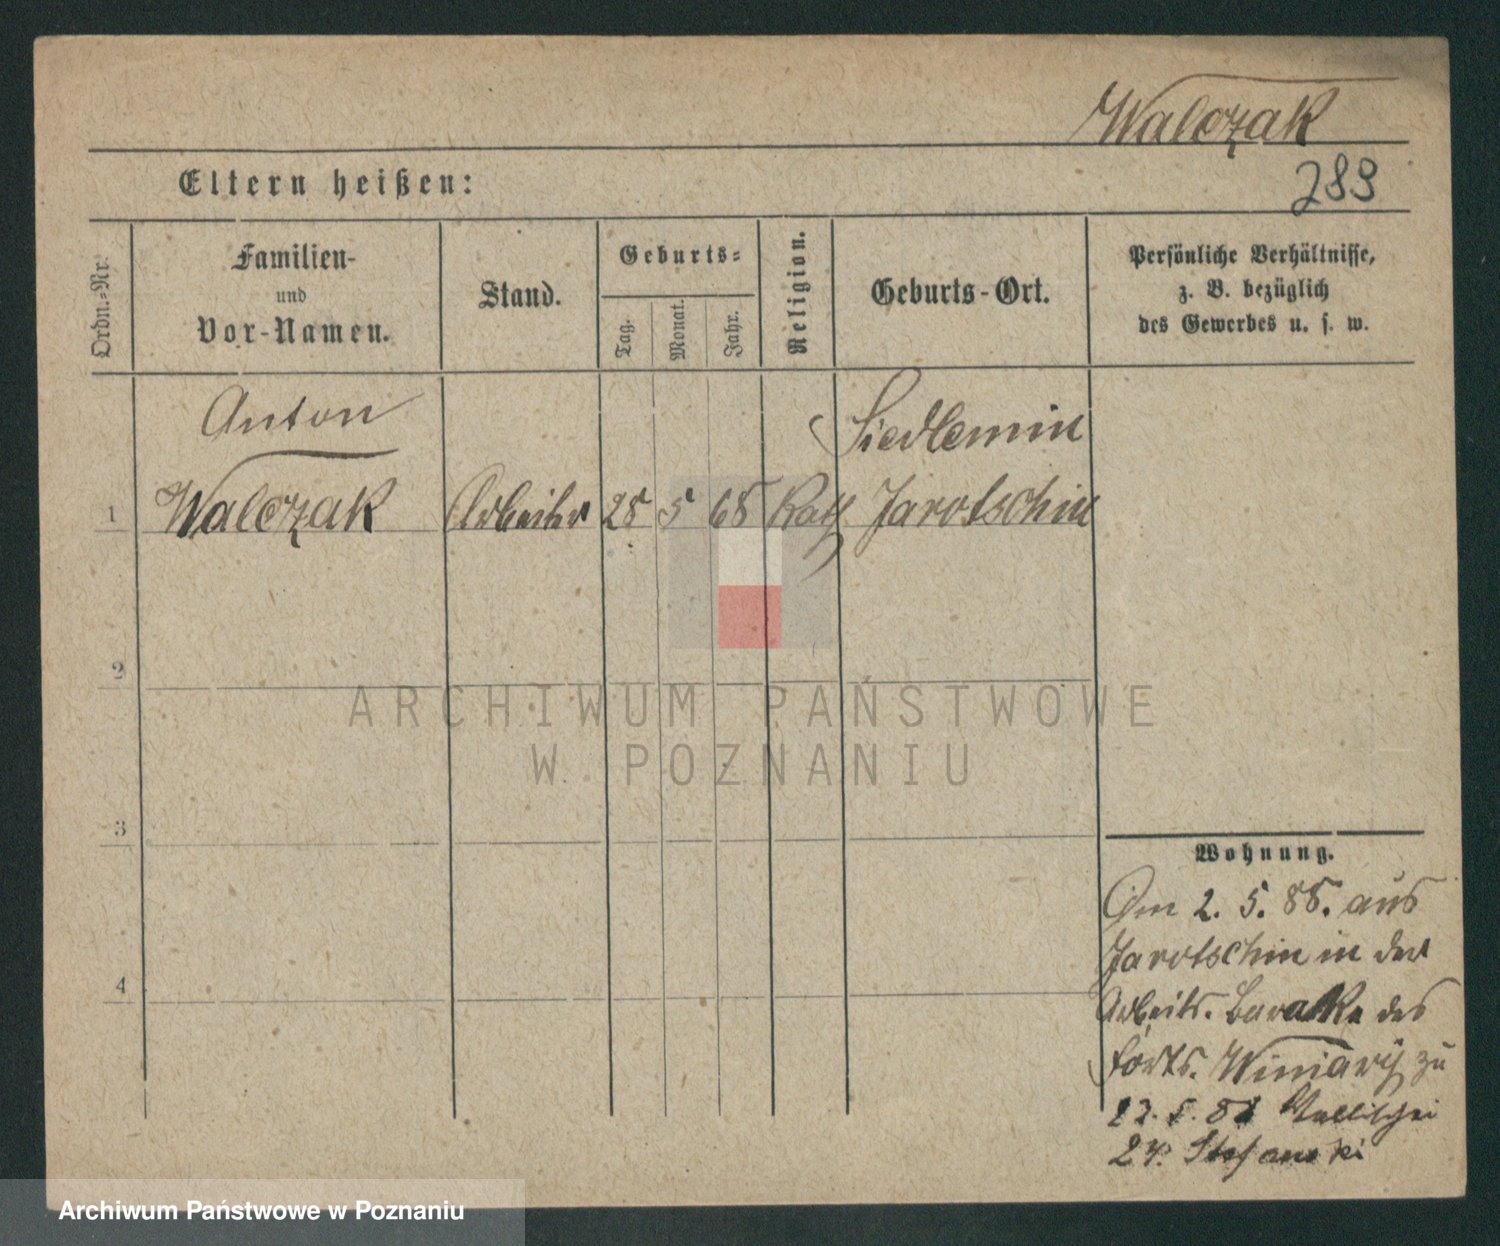 Walczak
Eltern heißen:
289
Ordn.=Nr.
Familien-
und
Vor-Namen.
Stand.
Geburts=
Tag.
Monat.
Jahr.
Religion.
Geburts-Ort.
Persönliche Verhältnisse,
z. B. bezüglich
des Gewerbes u. s. w.
Anton
Siedlemin
1 Walczak Arbeiter 28 5 68 Kath Jarotschin
2
3
4
ARCHIWUM PAŃSTWOWE
W POZNANIU
Wohnung.
Am 2. 5. 88. aus
Jarotschin in der
Arbeits. Baracke des
Forts. Winiary zu
Wallischei
24. Stefanski
Archiwum Państwowe w Poznaniu